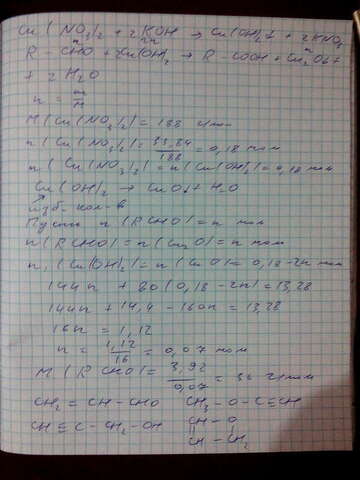 Cu(NO3)2 + 2KOH → Cu(OH)2↓ + 2KNO3
R - CHO + 2Cu(OH)2 → R - COOH + Cu2O↓ +
+ 2H2O
n = m/M
M(Cu(NO3)2) = 188 г/моль
n(Cu(NO3)2) = 33,84/188 = 0,18 моль
n(Cu(NO3)2) = n(Cu(OH)2) = 0,18 моль
Cu(OH)2 → CuO↓ + H2O
изб. кол-в
Пусть n(RCHO) = n моль
n(RCHO) = n(Cu2O) = n моль
n1(Cu(OH)2) = n(CuO) = 0,18 - 2n моль
144n + 80(0,18 - 2n) = 13,28
144n + 14,4 - 160n = 13,28
16n = 1,12
n = 1,12/16 = 0,07 моль
M(RCHO) = 3,92/0,07 = 56 г/моль
CH2 = CH - CHO CH3 - O - C ≡ CH
CH ≡ C - CH2 - OH CH - O
CH - CH2